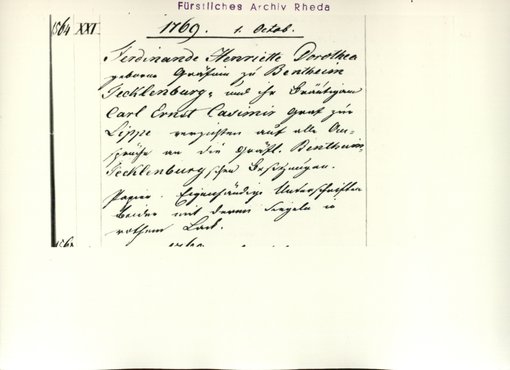 Fürstliches Archiv Rheda
1564 XXI. 1769. 1. Octob.
Ferdinande Henriette Dorothea
geborne Gräfinn zu Bentheim
Tecklenburg, und ihr Bräutigam
Carl Ernst Casimir Graf zur
Lippe verzichten auf alle An-
sprüche an die Gräfl. Bentheim-
Tecklenburgschen Besitzungen.
Papier. Eigenhändige Unterschriften
beider mit deren Siegeln in
rothem Lack.